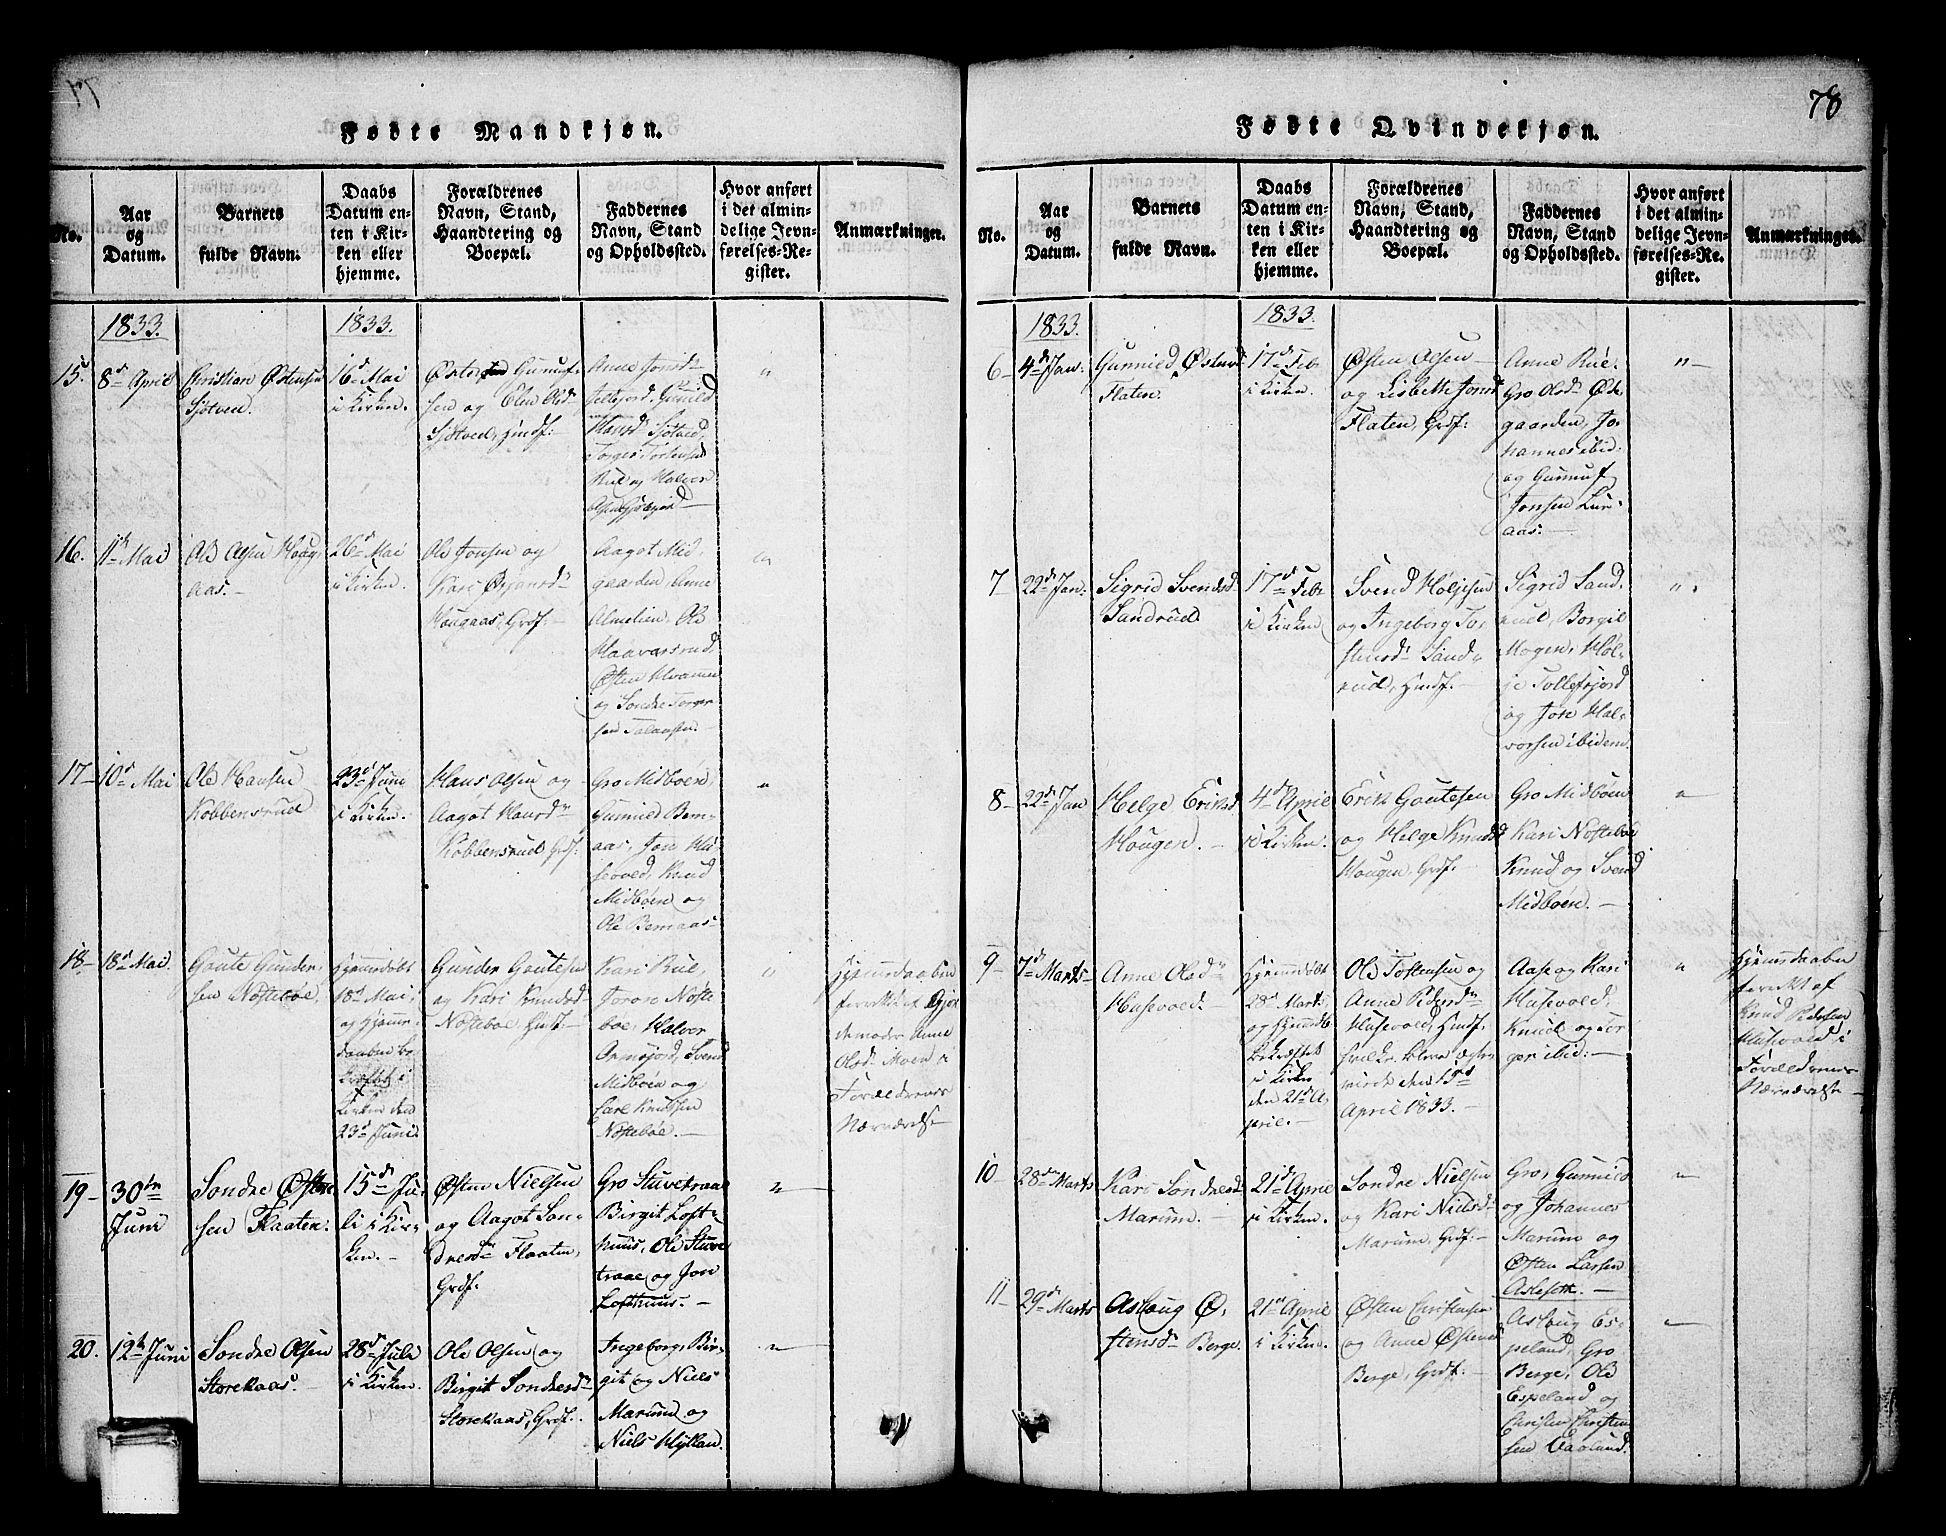 77
Fødte Mandkjøn.
No.
Aar
og
Datum.
Barnets
fulde Navn.
Daabs
Datum en-
ten i Kir-
ken eller
hjemme.
Forældrenes
Navn, Stand,
Haandtering og
Boepæl.
Faddernes
Navn, Stand
og Opholdssted.
Hvor anført
i det almin-
delige Jevn-
førelses-Re-
gister.
Anmærkninger.
1833.
1833.
15.
8d April
Christian Østensen
Sjøtved.
16d Mai
i Kirken.
Østen Gunuf-
sen og Elen Olsdr
Sjøtved, Hindf:
Anne Jonsd
Gunild
Hansd Sjøtved,
Torger Tostensen
Rue og Halvor
"
16.
11te Mai
Ole Olsen Houg-
aas.
26d Mai
i Kirken.
Ole Jonsen og
Kari Ørjansdr
Hougaas, Grdf:
Aagot Mid-
gaarden, Anne
Almelien, Ole
Haavarsrud,
Østen Hvammen
og Sondre Torger-
sen
"
17
10d Mai
Ole Hansen
Kobbensrud
23d Juni
i Kirken.
Hans Olsen og
Aagot Hansdr
Kobbensrud Grdf:
Gro Midbøen,
Gunild Bem-
aas, Jon Hu-
sevold, Knud
Midbøen og
Ole Bemaas
"
18
18d Mai
Goute Gunder-
sen Nøstebøe.
Hjemmedøbt
18d Mai,
og Hjemme-
daaben be-
kræftet i
Kirken den
23d Juni
Gunder Goutesen
og Kari Knudsd
Nøstebøe, Hindf:
Kari Rue,
Joron Nøste-
bøe, Halvor
Svend
Midbøen og
Carl Knudsen
Nøstebøe.
"
Hjemmedaaben
forrettet af Gjor-
demoder Anne
Olsd Moen i
Forældrenes
Nærværelse
19
30te
Juni
Sondre Østen-
sen Flaaten.
15d Ju-
li i Kir-
ken.
Østen Nielsen
og Aagot Son-
dresdr Flaaten,
Grdf.
Gro Stuvetraae
Birgit Loft-
huus, Ole Stuve-
traae og Jon
Lofthuus.
"
20.
12te Juni
Sondre Olsen
Storekaas.
28d Juli
i Kirken.
Ole Olsen og
Birgit Sondresdr
Storekaas, Grdf.
Ingeborg, Bir-
git og Niels
Marum og
Niels Hyllan.
"
78
Fødte Qvindekjøn.
No.
Aar
og
Datum.
Barnets
fulde Navn.
Daabs
Datum en-
ten i Kir-
ken eller
hjemme.
Forældrenes
Navn, Stand,
Haandtering og
Boepæl.
Faddernes
Navn, Stand
og Opholdssted.
Hvor anført
i det almin-
delige Jevn-
førelses-Re-
gister.
Anmærkninger.
1833.
1833.
6
4d Jan:
Gunnild Østensd
Flaten.
17d Feb
i Kirken.
Østen Olsen
og Lisbeth Jonsd
Flaten, Grdf:
Anne Rue
Gro Olsd Øst-
gaarden, Jo-
hannes ibid.
og Gunnuf
Jonsen Lur-
aas.
"
7
22d Jan:
Sigrid Svendsd
Sandrud
17d Feb
i Kirken
Svend Høljesen
og Ingeborg To-
stensdr Sand-
rud, Hindf.
Sigrid Sand-
rud, Borgil
Mogen, Høl-
je Tollefsjord
og Jon Hal-
vorsen ibidem
"
8
22d Jan
Helge Eriksd
Hougen.
4d April
i Kirken.
Erik Goutesen
og Helge Knudsd
Hougen, Grdf.
Gro Midbøen
Kari Nøstebøe
Knud og Svend
Midbøen.
"
9
7d Marts
Anne Olsdr
Husevold.
Hjemmedøbt
28d Marts
og Hjemmed
bekræftet
i Kirken
den 21d A-
pril.
Ole Tostensen og
Anne Pedersdr
Husevold, Hindf,
hvilke bleve ægte-
viede den 15d
April 1833.
Aase og Kari
Husevold,
Knud og Tor-
ger ibid:
"
Hjemmedaaben
forrettet af
Knud Pedersen
Husevold i
Forældrenes
Nærværelse
10
28d Marts
Kari Sondresd
Marum.
21d April
i Kirken.
Sondre Nielsen
og Kari Nielsd
Marum, Grdf:
Gro, Gunnild
og Johannes
Marum og
Østen Larsen
"
11
29d Marts
Aslaug Ø-
stensdr Berge.
21d April
i Kirken.
Østen Christensen
og Anne Østensd
Berge, Grdf:
Aslaug Es-
peland, Gro
Berge, Ole
Espeland og
Christen Christen-
sen Vaalund.
"